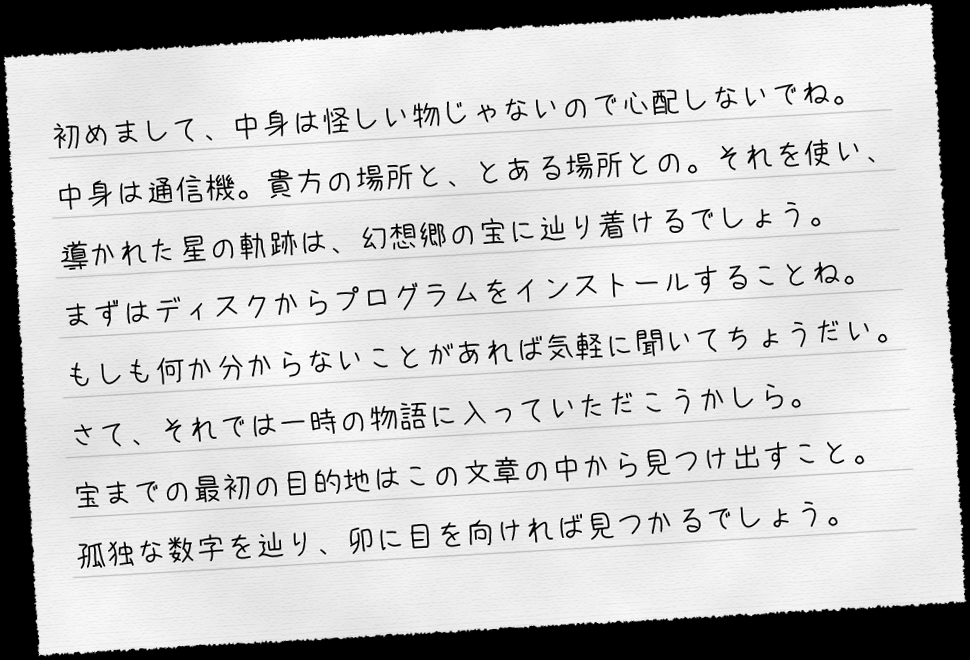 初めまして、中身は怪しい物じゃないので心配しないでね。
中身は通信機。貴方の場所と、とある場所との。それを使い、
導かれた星の軌跡は、幻想郷の宝に辿り着けるでしょう。
まずはディスクからプログラムをインストールすることね。
もしも何か分からないことがあれば気軽に聞いてちょうだい。
さて、それでは一時の物語に入っていただこうかしら。
宝までの最初の目的地はこの文章の中から見つけ出すこと。
孤独な数字を辿り、卯に目を向ければ見つかるでしょう。